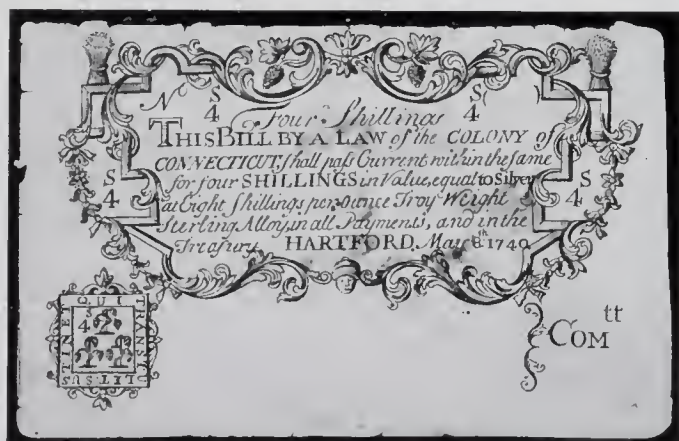 No
S
4
S
4
Four Shillings
THIS BILL BY A LAW of the COLONY of
CONNECTICUT, shall paſs Current within the ſame
S
4
for four SHILLINGS in Value, equal to Silver
S
4
at Eight ſhillings per Ounce Troy Weight
Sterling Alloy, in all Payments, and in the
Treaſury HARTFORD, May 8th 1740
QUI
TRANST
LIT SUS
TINET
S
4
COM tt